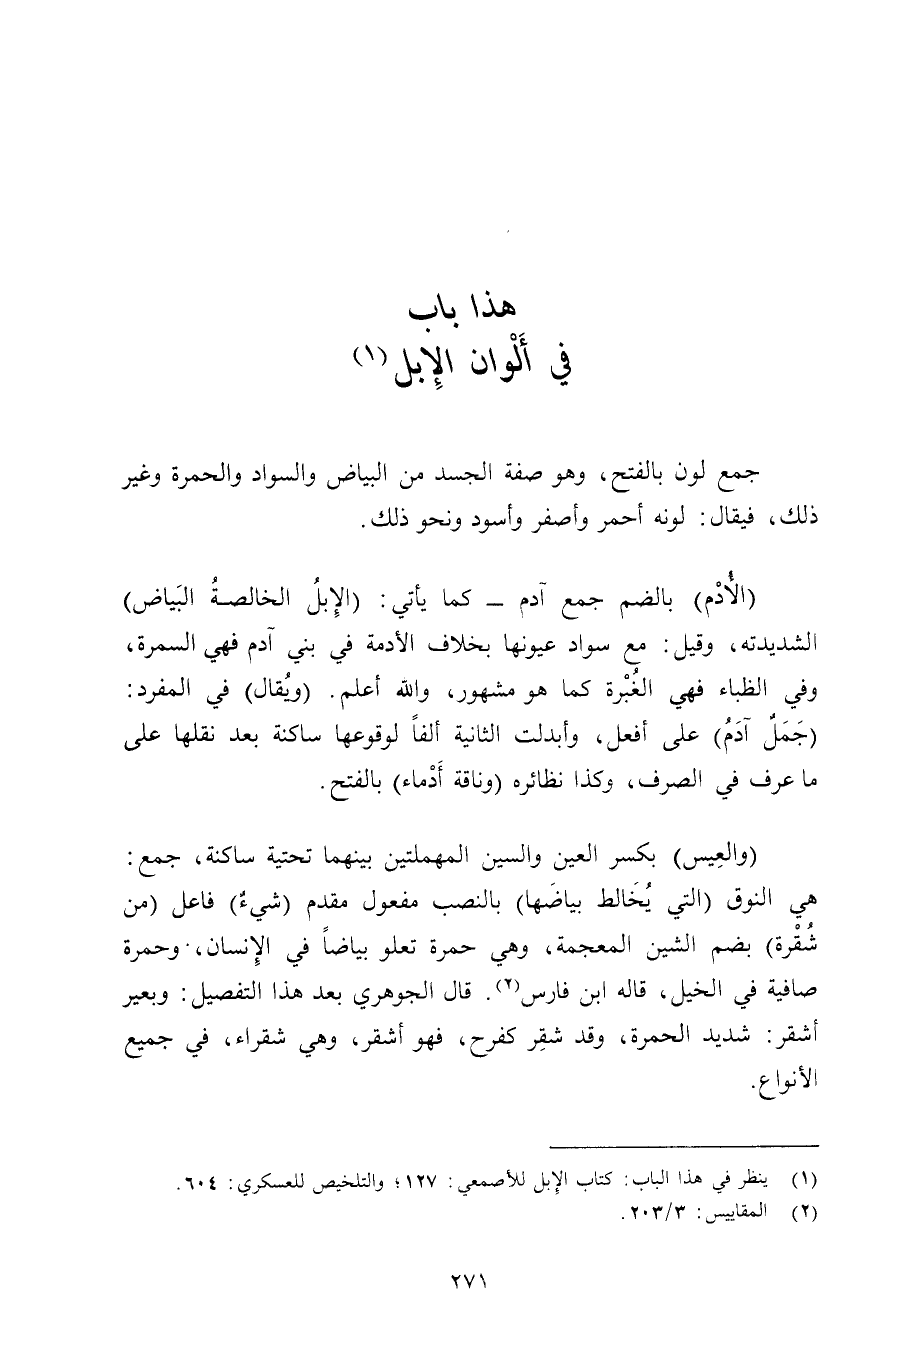 هذا باب
في أَلْوان الإِبل(١)
جمع لون بالفتح، وهو صفة الجسد من البياض والسواد والحمرة وغير
ذلك، فيقال: لونه أحمر وأصفر وأسود ونحو ذلك.
(الأُدْم) بالضم جمع آدم – كما يأتي: (الإِبلُ الخالصةُ البَياض)
الشديدته، وقيل: مع سواد عيونها بخلاف الأدمة في بني آدم فهي السمرة،
وفي الظباء فهي الغُبْرة كما هو مشهور، والله أعلم. (ويُقال) في المفرد:
(جَمَلٌ آدَمُ) على أفعل، وأبدلت الثانية ألفاً لوقوعها ساكنة بعد نقلها على
ما عرف في الصرف، وكذا نظائره (وناقة أَدْماء) بالفتح.
(والعِيس) بكسر العين والسين المهملتين بينهما تحتية ساكنة، جمع:
هي النوق (التي يُخَالط بياضَها) بالنصب مفعول مقدم (شيءٌ) فاعل (من
شُقْرة) بضم الشين المعجمة، وهي حمرة تعلو بياضاً في الإِنسان، وحمرة
صافية في الخيل، قاله ابن فارس(٢). قال الجوهري بعد هذا التفصيل: وبعير
أشقر: شديد الحمرة، وقد شقِر كفرح، فهو أشقر، وهي شقراء، في جميع
الأنواع.
(١) ينظر في هذا الباب: كتاب الإِبل للأصمعي: ١٢٧؛ والتلخيص للعسكري: ٦٠٤.
(٢) المقاييس: ٢٠٣/٣.
٢٧١